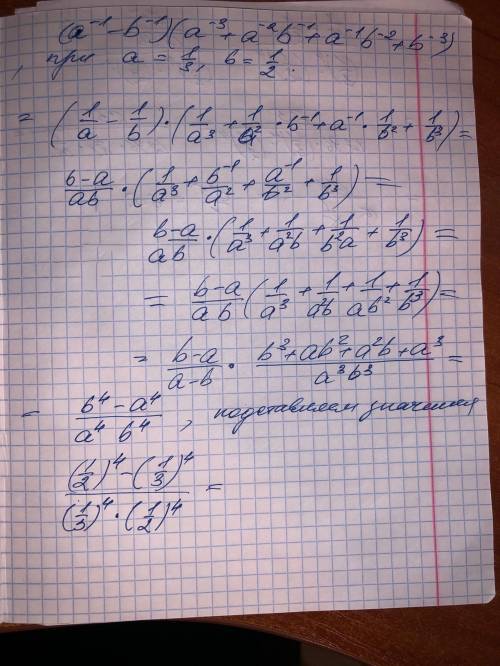 (a⁻¹-b⁻¹)(a⁻³+a⁻²b⁻¹+a⁻¹b⁻²+b⁻³)
, при a = 1/3, b = 1/2.
= (1/a - 1/b)·(1/a³ + 1/a²·b⁻¹+a⁻¹·1/b² + 1/b³)=
b-a/ab · (1/a³ + b⁻¹/a² + a⁻¹/b² + 1/b³) =
b-a/ab · (1/a³ + 1/a²b + 1/b²a + 1/b³) =
= b-a/ab (1/a³ + 1/a²b + 1/ab² + 1/b³)=
= b-a/a-b · b³+ab²+a²b+a³/a³b³ =
= b⁴-a⁴/a⁴ b⁴, подставляем значения
(1/2)⁴-(1/3)⁴/(1/3)⁴·(1/2)⁴ =